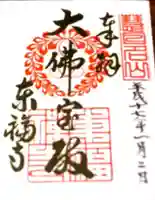 奉拝
大佛宝殿
東福寺
平成十七年一月二日